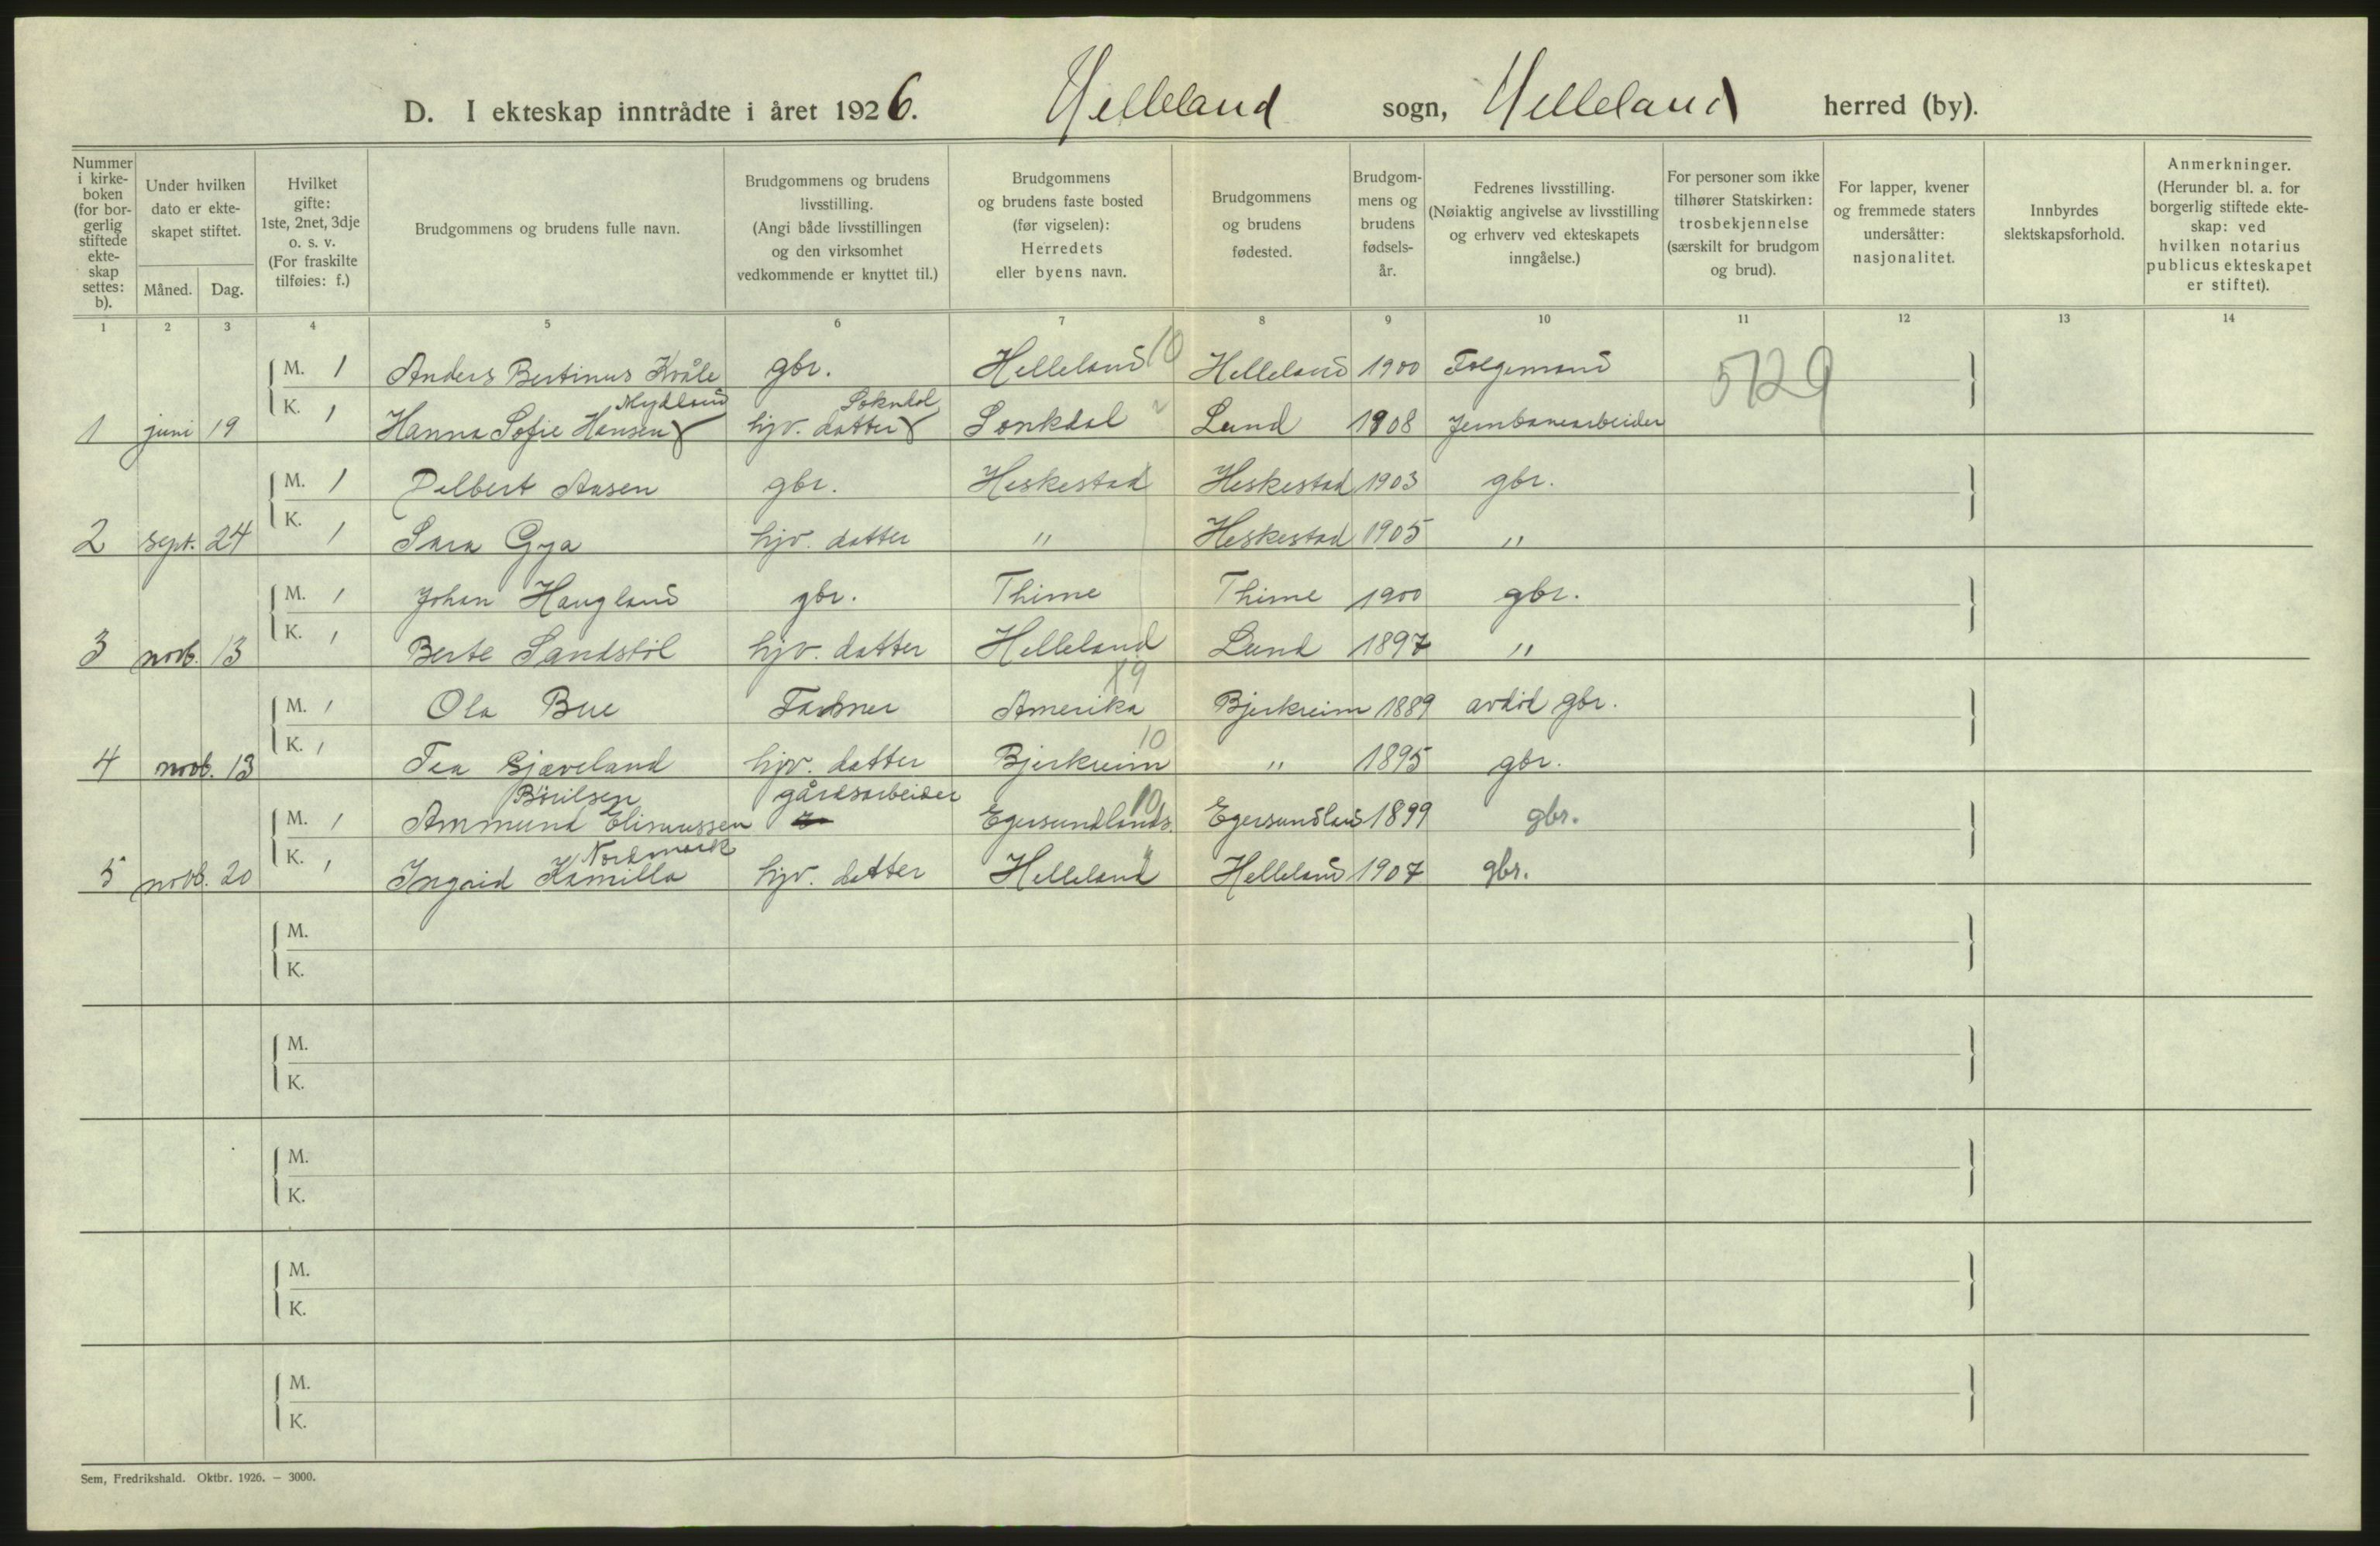 D. I ekteskap inntrådte i året 1926. Helleland sogn, Helleland herred (by).
Nummer i kirkeboken (for borgerlig stiftede ekteskap settes: b).
Under hvilken dato er ekteskapet stiftet.
Måned. Dag.
Hvilket gifte: 1ste, 2net, 3dje o. s. v. (For fraskilte tilføies: f.)
Brudgommens og brudens fulle navn.
Brudgommens og brudens livsstilling. (Angi både livsstillingen og den virksomhet vedkommende er knyttet til.)
Brudgommens og brudens faste bosted (før vigselen): Herredets eller byens navn.
Brudgommens og brudens fødested.
Brudgommens og brudens fødselsår.
Fedrenes livsstilling. (Nøiaktig angivelse av livsstilling og erhverv ved ekteskapets inngåelse.)
For personer som ikke tilhører Statskirken: trosbekjennelse (særskilt for brudgom og brud).
For lapper, kvener og fremmede staters undersåtter: nasjonalitet.
Innbyrdes slektskapsforhold.
Anmerkninger. (Herunder bl. a. for borgerlig stiftede ekteskap: ved hvilken notarius publicus ekteskapet er stiftet).
1 2 3 4 5 6 7 8 9 10 11 12 13 14
M. 1 Anders Bertinus Kvåle gbr. Helleland 10 Helleland 1900 Følgemand 5729
Mydland Sokndal
1 juni 19 K. 1 Hanna Sofie Hansen hjv. datter Sonkdal Lund 1908 Jernbanearbeider
M. 1 Delbert Aasen gbr. Heskestad Heskestad 1903 gbr.
2 sept. 24 K. 1 Sara Gya hjv. datter " Heskestad 1905 "
M. 1 Johan Haugland gbr. Thime Thime 1900 gbr.
3 novb. 13 K. 1 Berte Sandstöl hjv. datter Helleland Lund 1897 "
19
M. 1 Ola Bue Farmer Amerika Bjerkreim 1889 avdöd gbr.
10
4 novb. 13 K. 1 Tea Gjæveland hjv. datter Bjerkreim " 1895 gbr.
Börilsen gårdsarbeider
M. 1 Ammund Elismussen Egersundlands. 10 Egersundland 1899 gbr.
Nordmark
5 novb. 20 K. 1 Ingrid Kamilla hjv. datter Helleland " Helleland 1907 gbr.
M.
K.
M.
K.
M.
K.
M.
K.
M.
K.
Sem, Fredrikshald. Oktbr. 1926. – 3000.